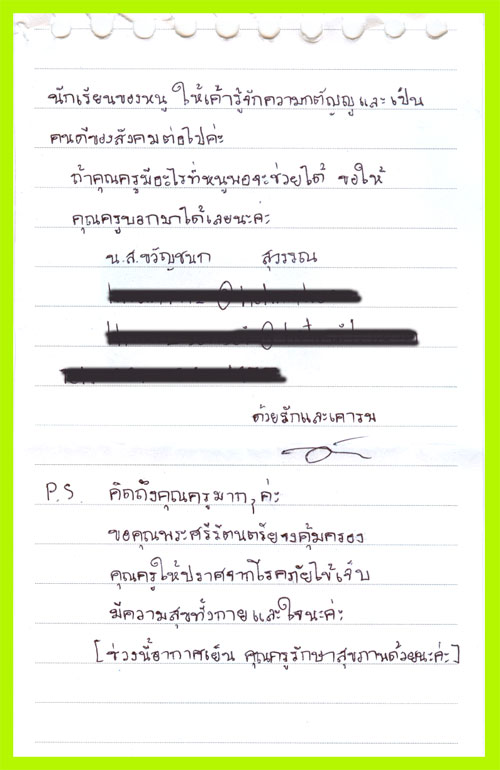 นักเรียนของหนู ให้เค้ารู้จักความกตัญญูและเป็น
คนดีของสังคมต่อไปค่ะ
ถ้าคุณครูมีอะไรที่หนูพอจะช่วยได้ ขอให้
คุณครูบอกมาได้เลยนะค่ะ
น.ส.ขวัญชนก สุวรรณ
ด้วยรักและเคารพ
P.S. คิดถึงคุณครูมากๆค่ะ
ขอคุณพระศรีรัตนตรัยจงคุ้มครอง
คุณครูให้ปราศจากโรคภัยไข้เจ็บ
มีความสุขทั้งกายและใจนะค่ะ
[ช่วงนี้อากาศเย็น คุณครูรักษาสุขภาพด้วยนะค่ะ]